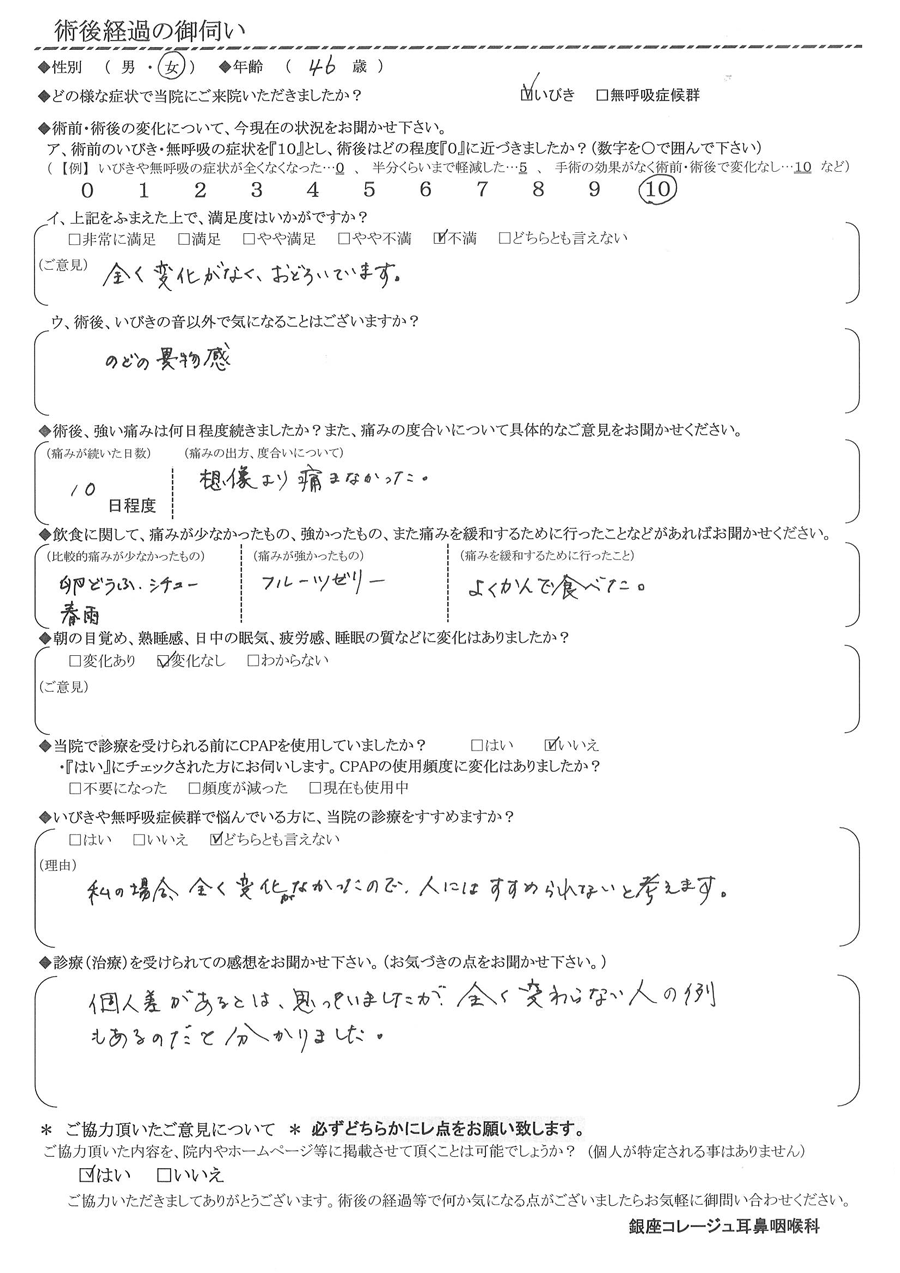 術後経過の御伺い
◆性別 （ 男 ・ 女 ） ◆年齢 （ 46 歳 ）
◆どの様な症状で当院にご来院いただきましたか？ ☑いびき □無呼吸症候群
◆術前・術後の変化について、今現在の状況をお聞かせ下さい。
ア、術前のいびき・無呼吸の症状を『10』とし、術後はどの程度『0』に近づきましたか？（数字を〇で囲んで下さい）
（ 【例】 いびきや無呼吸の症状が全くなくなった…0 、 半分くらいまで軽減した…5 、 手術の効果がなく術前・術後で変化なし…10 など）
0 1 2 3 4 5 6 7 8 9 10
イ、上記をふまえた上で、満足度はいかがですか？
□非常に満足 □満足 □やや満足 □やや不満 ☑不満 □どちらとも言えない
（ご意見） 全く変化がなく、おどろいています。
ウ、術後、いびきの音以外で気になることはございますか？
のどの異物感
◆術後、強い痛みは何日程度続きましたか？また、痛みの度合いについて具体的なご意見をお聞かせください。
（痛みが続いた日数） （痛みの出方、度合いについて）
10 日程度 想像より痛まなかった。
◆飲食に関して、痛みが少なかったもの、強かったもの、また痛みを緩和するために行ったことなどがあればお聞かせください。
（比較的痛みが少なかったもの） （痛みが強かったもの） （痛みを緩和するために行ったこと）
卵どうふ.シチュー フルーツゼリー よくかんで食べた。
春雨
◆朝の目覚め、熟睡感、日中の眠気、疲労感、睡眠の質などに変化はありましたか？
□変化あり ☑変化なし □わからない
（ご意見）
◆当院で診療を受けられる前にCPAPを使用していましたか？ □はい ☑いいえ
・『はい』にチェックされた方にお伺いします。CPAPの使用頻度に変化はありましたか？
□不要になった □頻度が減った □現在も使用中
◆いびきや無呼吸症候群で悩んでいる方に、当院の診療をすすめますか？
□はい □いいえ ☑どちらとも言えない
（理由）
私の場合、全く変化がなかったので、人にはすすめられないと考えます。
◆診療（治療）を受けられての感想をお聞かせ下さい。（お気づきの点をお聞かせ下さい。）
個人差があるとは、思っていましたが、全く変わらない人の例
もあるのだと分かりました。
＊ ご協力頂いたご意見について ＊ 必ずどちらかにレ点をお願い致します。
ご協力頂いた内容を、院内やホームページ等に掲載させて頂くことは可能でしょうか？ （個人が特定される事はありません）
☑はい □いいえ
ご協力いただきましてありがとうございます。術後の経過等で何か気になる点がございましたらお気軽に御問い合わせください。
銀座コレージュ耳鼻咽喉科